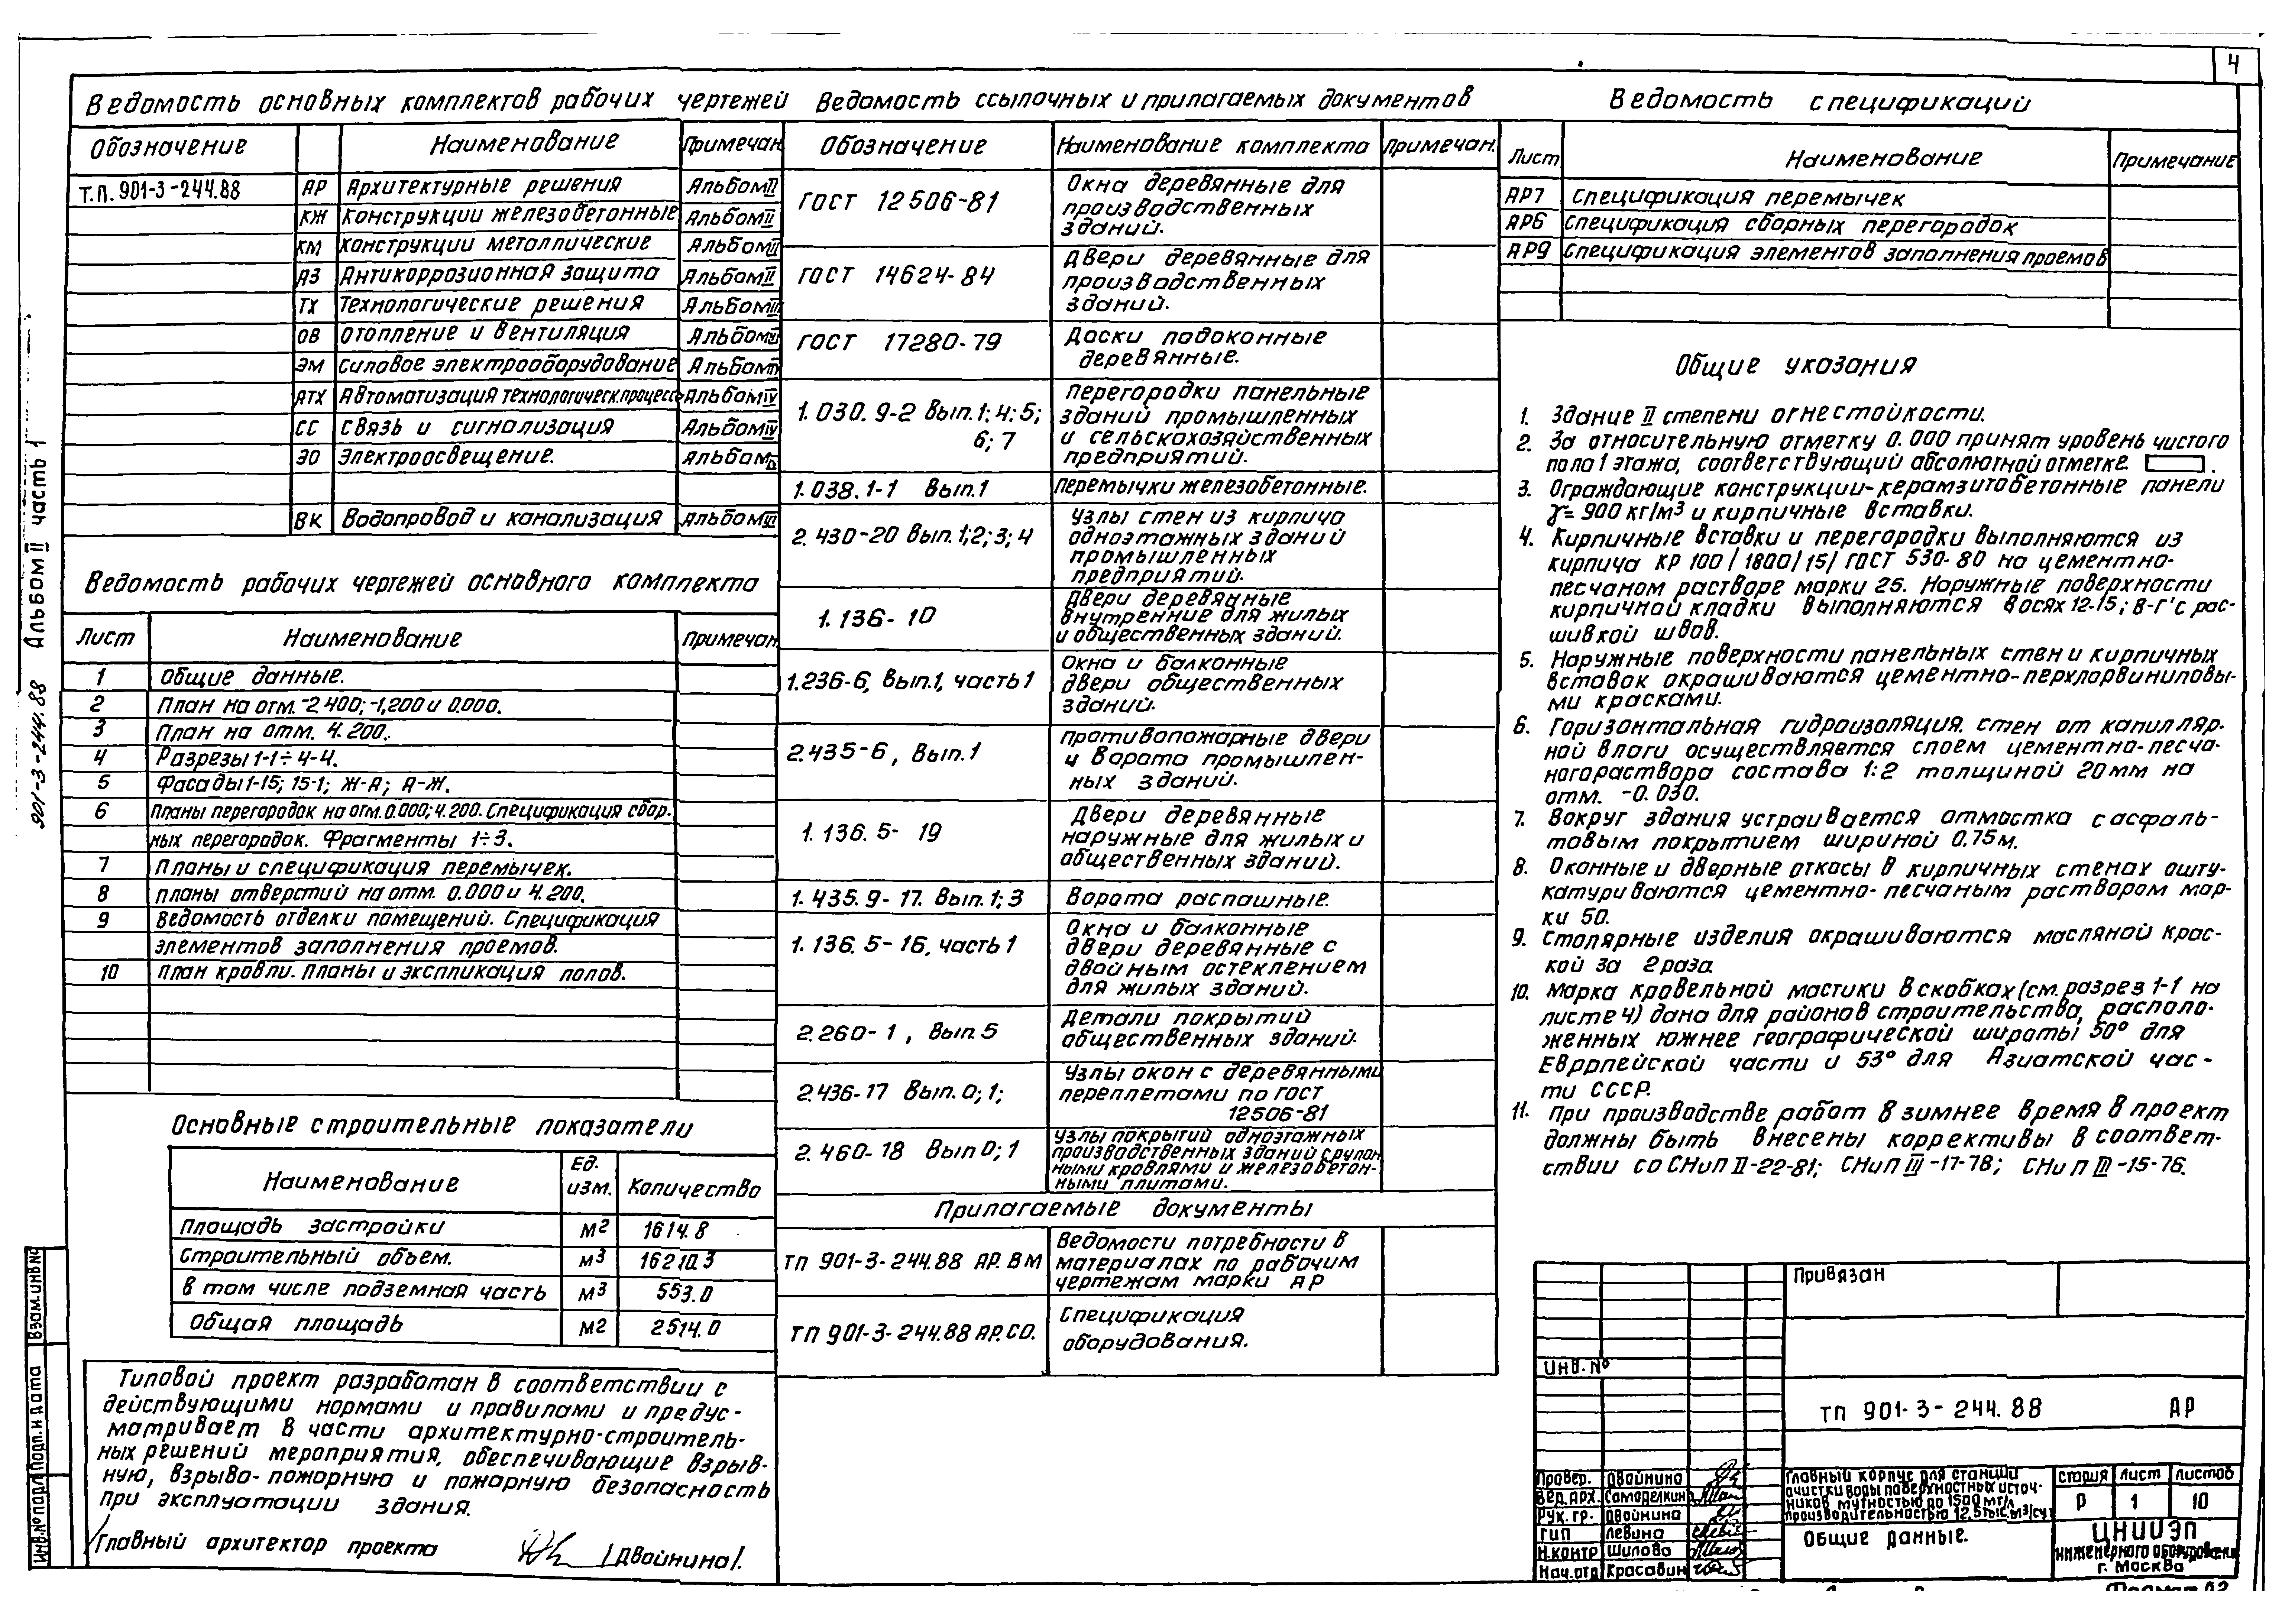 4
Ведомость основных комплектов рабочих чертежей
Обозначение Наименование Примечан.
Т.П. 901-3-244.88 АР Архитектурные решения Альбом II
КЖ Конструкции железобетонные Альбом II
КМ Конструкции металлические Альбом II
АЗ Антикоррозионная защита Альбом II
ТХ Технологические решения Альбом III
ОВ Отопление и вентиляция Альбом
ЭМ Силовое электрооборудование Альбом IV
АТХ Автоматизация технологическ.процесс. Альбом IV
СС Связь и сигнализация Альбом IV
ЭО Электроосвещение. Альбом
ВК Водопровод и канализация Альбом III
Ведомость рабочих чертежей основного комплекта
Лист Наименование Примечан.
1 Общие данные.
2 План на отм. -2.400; -1,200 и 0.000.
3 План на отм. 4.200.
4 Разрезы 1-1÷4-4.
5 Фасады 1-15; 15-1; Ж-А; А-Ж.
6 Планы перегородок на отм. 0.000; 4.200. Спецификация сбор-
ных перегородок. Фрагменты 1÷3.
7 Планы и спецификация перемычек.
8 Планы отверстий на отм. 0.000 и 4.200.
9 Ведомость отделки помещений. Спецификация
элементов заполнения проемов.
10 План кровли. Планы и экспликация полов.
Основные строительные показатели
Наименование Ед. изм. Количество
Площадь застройки м2 1614.8
Строительный объем. м3 16210.3
в том числе подземная часть м3 553.0
Общая площадь м2 2514.0
Типовой проект разработан в соответствии с
действующими нормами и правилами и предус-
матривает в части архитектурно-строитель-
ных решений мероприятия, обеспечивающие взрыв-
ную, взрыво-пожарную и пожарную безопасность
при эксплуатации здания.
Главный архитектор проекта /Двойнина/.
Ведомость ссылочных и прилагаемых документов
Обозначение Наименование комплекта Примечан.
ГОСТ 12506-81 Окна деревянные для
производственных
зданий.
ГОСТ 14624-84 Двери деревянные для
производственных
зданий.
ГОСТ 17280-79 Доски подоконные
деревянные.
1.030.9-2 Вып.1; 4; 5; Перегородки панельные
6; 7 зданий промышленных
и сельскохозяйственных
предприятий.
1.038.1-1 Вып.1 Перемычки железобетонные.
2.430-20 Вып.1;2;3;4 Узлы стен из кирпича
одноэтажных зданий
промышленных
предприятий.
1.136-10 Двери деревянные
внутренние для жилых
и общественных зданий.
1.236-6, Вып.1, часть 1 Окна и балконные
двери общественных
зданий.
2.435-6, Вып.1 Противопожарные двери
и ворота промышлен-
ных зданий.
1.136.5-19 Двери деревянные
наружные для жилых и
общественных зданий.
1.435.9-17. Вып.1; 3 Ворота распашные.
1.136.5-16, часть 1 Окна и балконные
двери деревянные с
двойным остеклением
для жилых зданий.
2.260-1, Вып.5 Детали покрытий
общественных зданий.
2.436-17 Вып.0; 1; Узлы окон с деревянными
переплетами по ГОСТ
12506-81
2.460-18 Вып 0; 1 Узлы покрытий одноэтажных
производственных зданий с рулон-
ными кровлями и железобетон-
ными плитами.
Прилагаемые документы
ТП 901-3-244.88 АР.ВМ Ведомости потребности в
материалах по рабочим
чертежам марки АР
ТП 901-3-244.88 АР.СО. Спецификация
оборудования.
Ведомость спецификаций
Лист Наименование Примечание
АР7 Спецификация перемычек
АР6 Спецификация сборных перегородок
АР9 Спецификация элементов заполнения проемов
Общие указания
1. Здание II степени огнестойкости.
2. За относительную отметку 0.000 принят уровень чистого
пола 1 этажа, соответствующий абсолютной отметке .
3. Ограждающие конструкции-керамзитобетонные панели
γ= 900 кг/м3 и кирпичные вставки.
4. Кирпичные вставки и перегородки выполняются из
кирпича КР 100/1800/15/ ГОСТ 530-80 на цементно-
песчаном растворе марки 25. Наружные поверхности
кирпичной кладки выполняются в осях 12-15; В-Г с рас-
шивкой швов.
5. Наружные поверхности панельных стен и кирпичных
вставок окрашиваются цементно-перхлорвиниловы-
ми красками.
6. Горизонтальная гидроизоляция стен от капилляр-
ной влаги осуществляется слоем цементно-песча-
ного раствора состава 1:2 толщиной 20мм на
отм. -0.030.
7. Вокруг здания устраивается отмостка с асфаль-
товым покрытием шириной 0.75м.
8. Оконные и дверные откосы в кирпичных стенах ошту-
катуриваются цементно-песчаным раствором мар-
ки 50.
9. Столярные изделия окрашиваются масляной крас-
кой за 2 раза.
10. Марка кровельной мастики в скобках (см. разрез 1-1 на
листе 4) дана для районов строительства, располо-
женных южнее географической широты 50° для
Европейской части и 53° для Азиатской час-
ти СССР.
11. При производстве работ в зимнее время в проект
должны быть внесены коррективы в соответ-
ствии со СНиП II-22-81; СНиП III-17-78; СНиП III-15-76.
Привязан
Инв. №
ТП 901-3-244.88 АР
Провер. Двойнина
Вед.арх. Самоделкина
Рук.гр. Двойнина
ГИП Левина
Н.контр Шилова
Нач.отд Красавин
Главный корпус для станции
очистки воды поверхностных источ-
ников мутностью до 1500 мг/л
производительностью 12,5тыс.м3/сут
Стадия Лист Листов
Р 1 10
Общие данные.
ЦНИИЭП
инженерного оборудования
г. Москва
Формат А2
901-3-244.88 Альбом II часть 1
Взам.инв№
Подп. и дата
Инв.№ подл